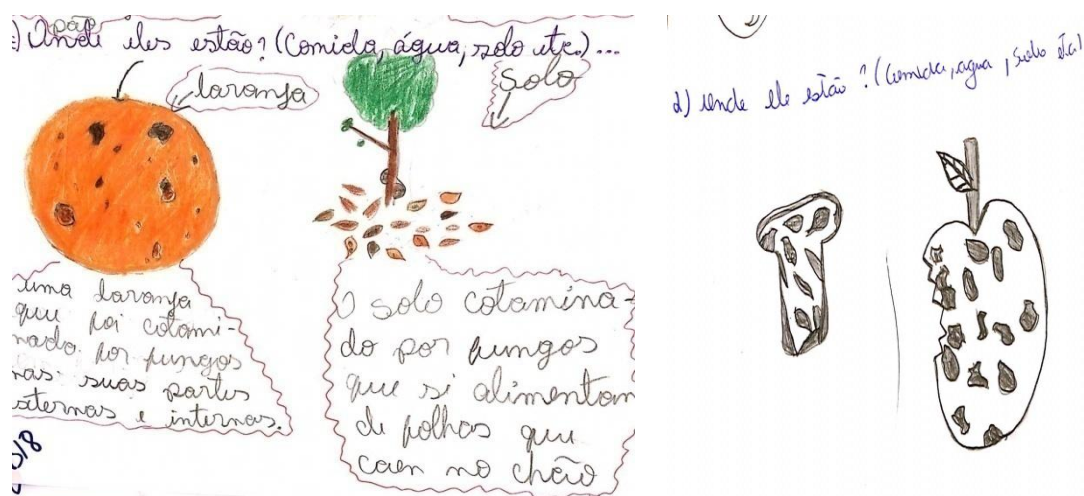 pão
) Onde eles estão? (Comida, água, solo etc.)...
laranja
Solo
uma laranja
que foi cotami-
nado por fungos
nas suas partes
xternas e internas.
O solo cotamina-
do por fungos
que si alimentam
de folhas que
caen no chão
d) Onde ele estão? (Comida, agua, solo etc.)